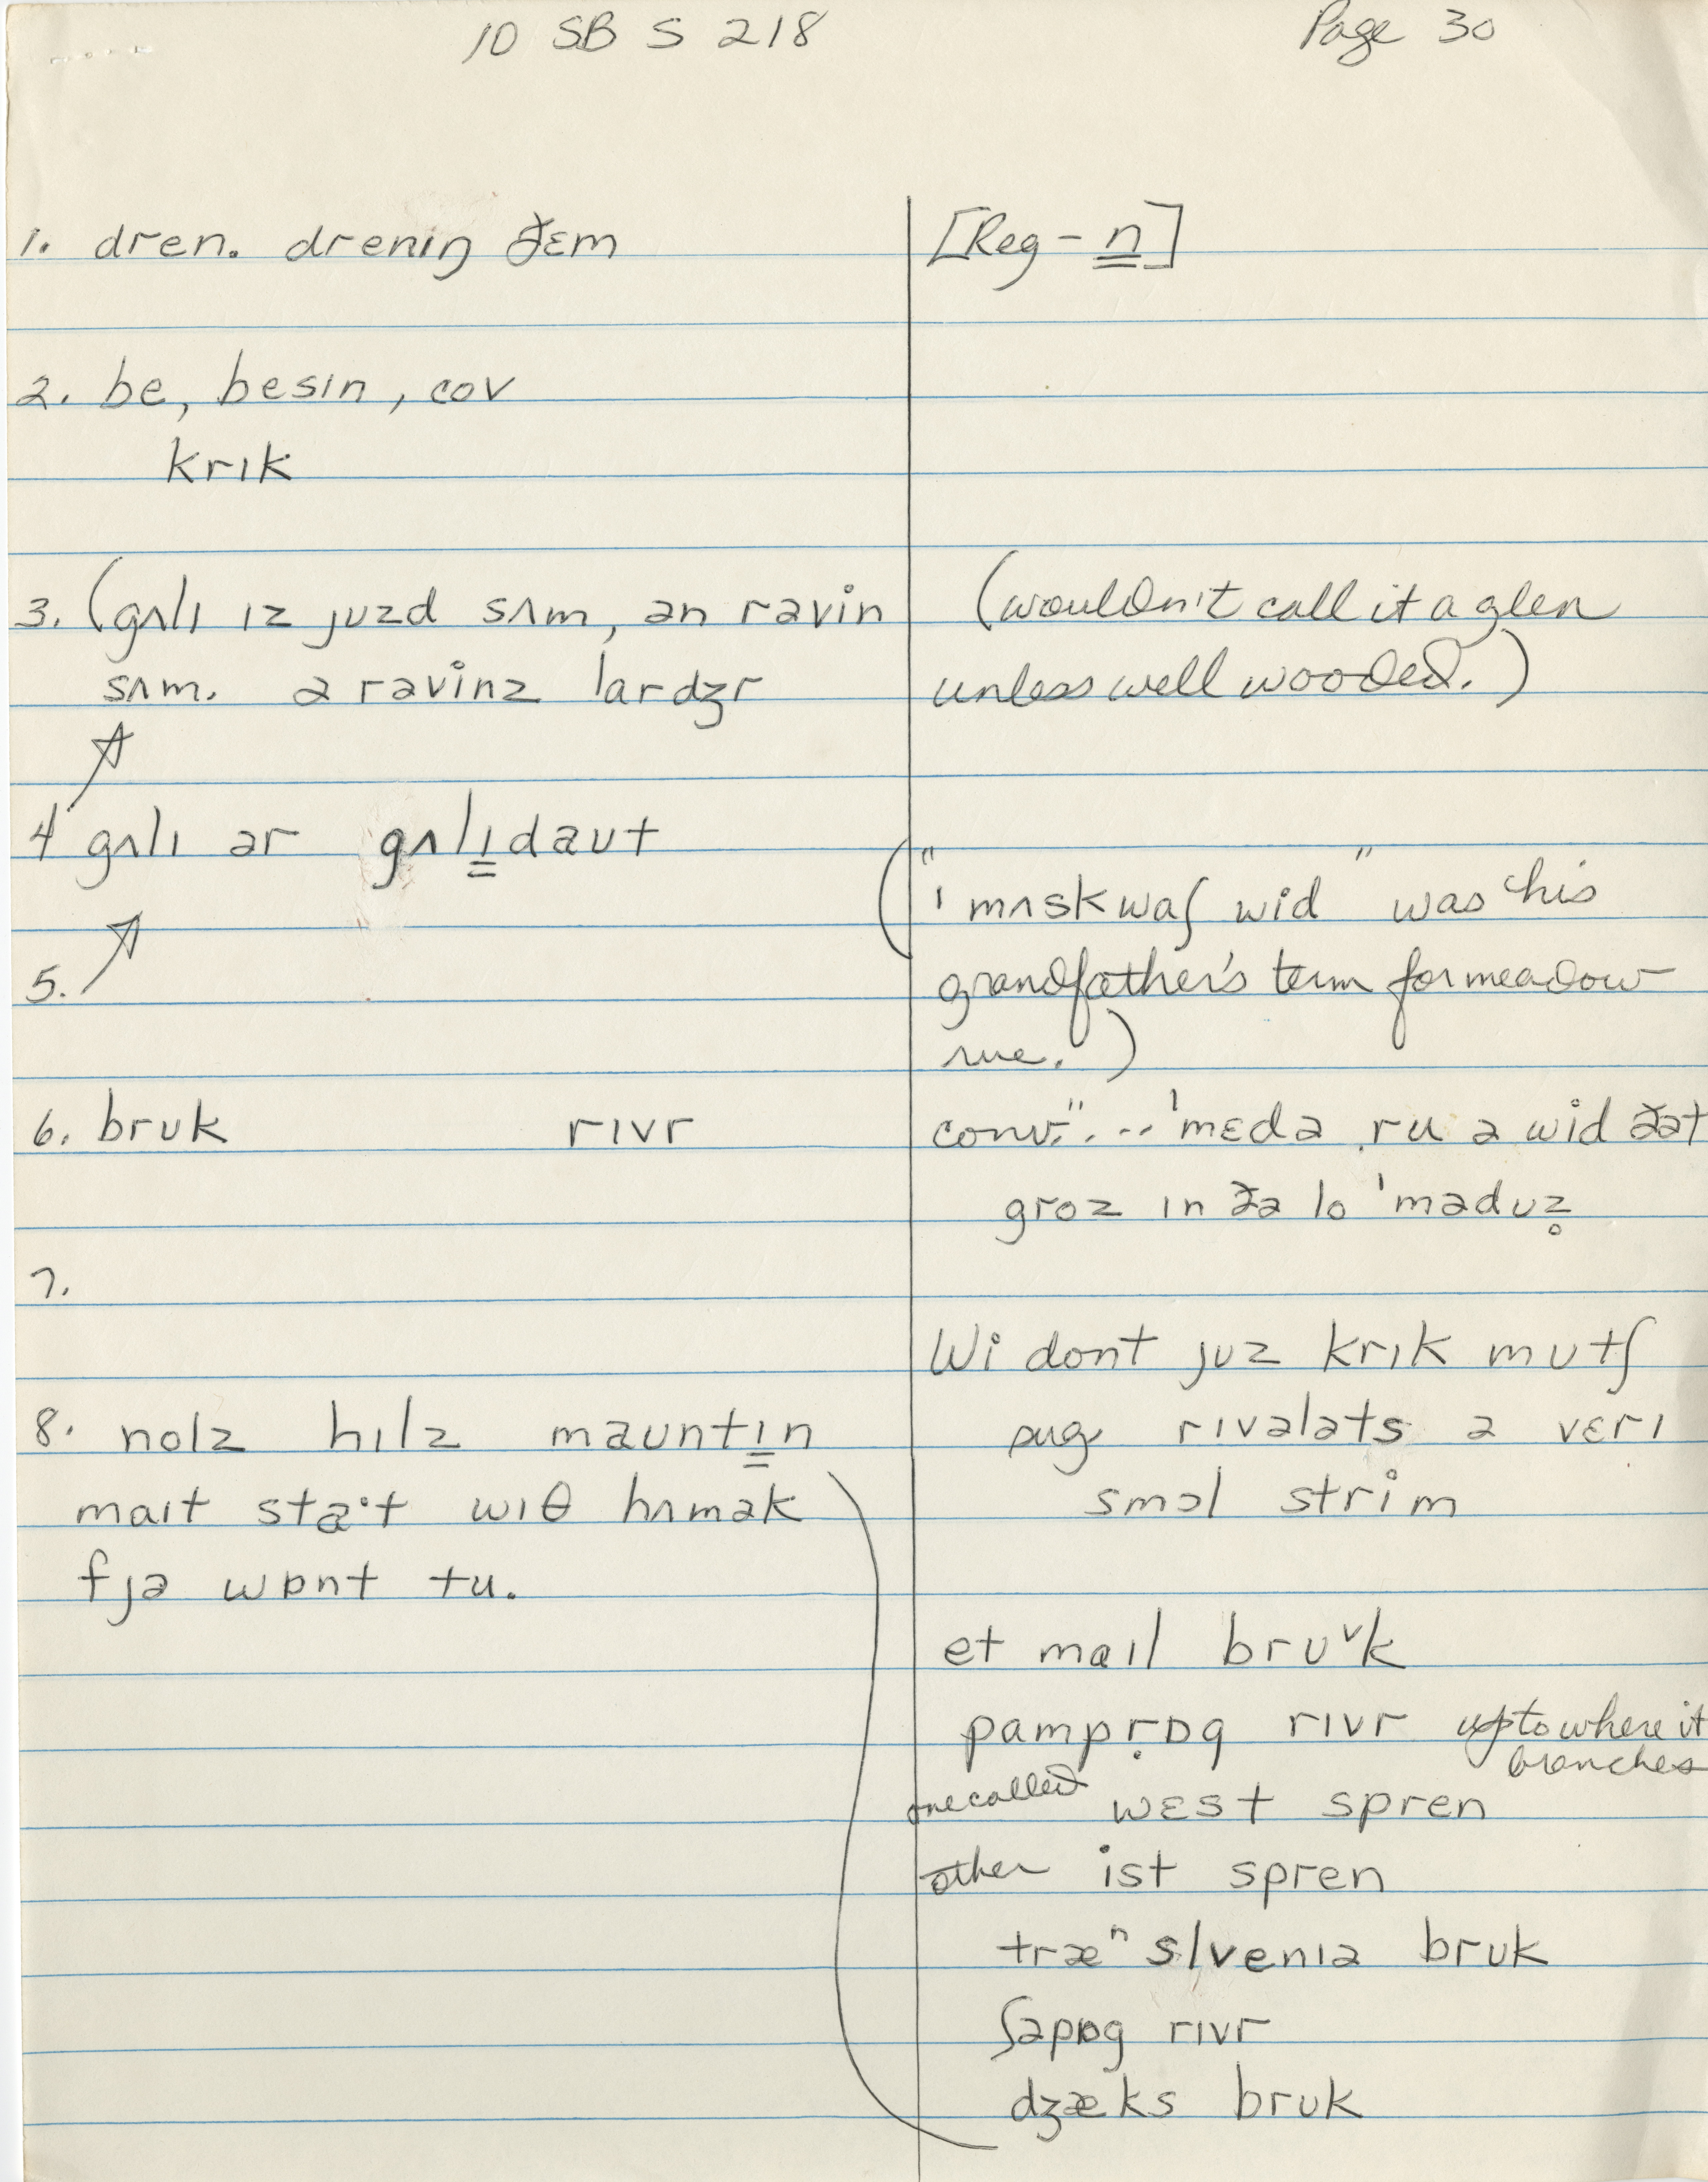 10 SB S 218 Page 30
1. dren. drenıŋ ðɛm
[Reg - n]
2. be, besın, cov
krık
3. (gʌlı ız juzd sʌm, ən ravin
sʌm. ə ravinz lardʒr
(wouldn't call it a glen
unless well wooded.)
4 gʌlı ər gʌlıdaʊt
5.
("ˈmʌskwaʃ wid" was his
grandfather's term for meadow
rue.)
6. brʊk rıvr
conv. "... ˈmɛdə ru ə wid ðət
groz ın ðə lo ˈmədʊz̥
7.
Wi dont juz krık mʊtʃ
sug rıvələts ə vɛrı
smɔl strim
8. nolz hılz maʊntın
maıt sta·t wıθ hʌmək
fjə wɒnt tu.
et maıl brʊᵛk
pamprɒg rıvr up to where it
branches
one called wɛst spren
other ist spren
træⁿslvenıə brʊk
ʃəpɒg rıvr
dʒæks brʊk